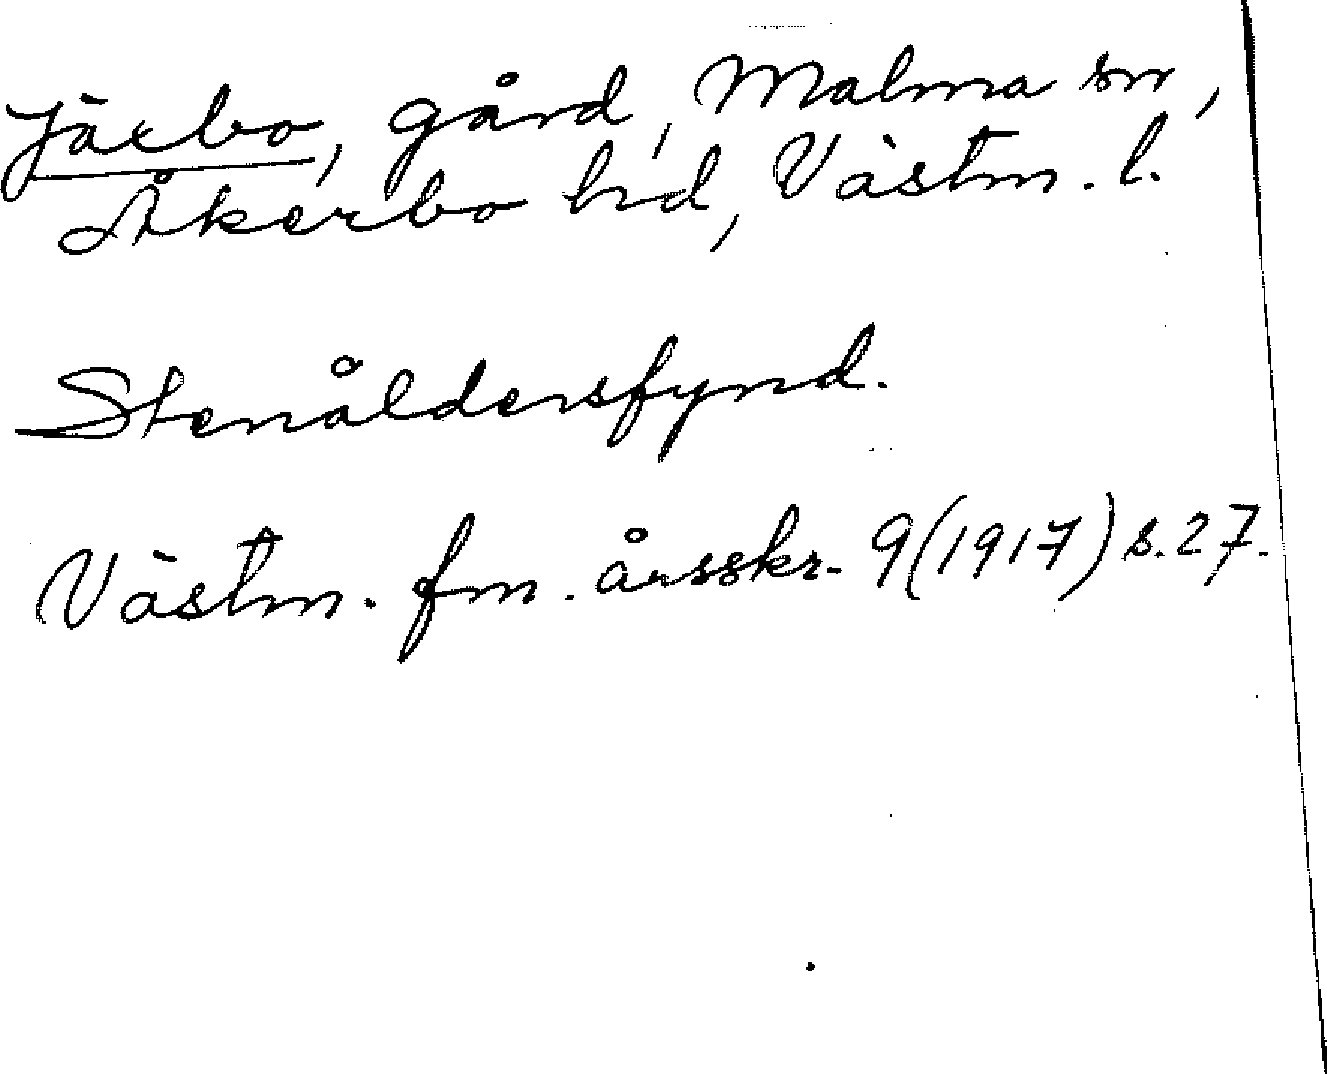 Järbo, gård, Malma sn,
Åkerbo hd, Västm. l.
Stenåldersfynd.
Västm. fm. årsskr. 9(1917) s. 27.